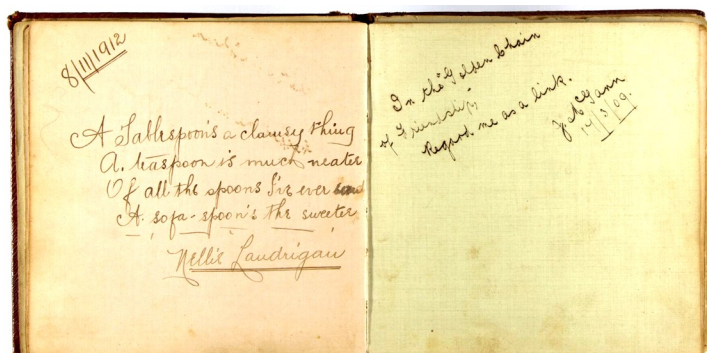 8/11/1912
A Tablespoon's a clumsy thing
A. teaspoon is much neater
Of all the spoons I've ever
A. sofa-spoon's the sweeter
Nellie Landrigan
In the "Golden Chain
of Friendship,"
Regard me as a link.
J. McGann
14/3/09.